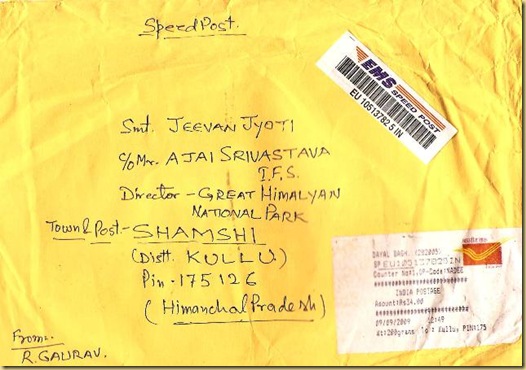 SpeedPost.
EMS
SPEED POST
EU 10513782 5 IN
Smt. JEEVAN JYOTI
C/o Mr. AJAI SRIVASTAVA
I.F.S.
Director - GREAT HIMALYAN
NATIONAL PARK
Town & Post:- SHAMSHI
(Distt. KULLU)
Pin - 175126
(Himanchal Pradesh)
From:-
R. GAURAV.
DAYAL BAGH, (282005)
Counter No:1,OP-Code:
INDIA POSTAGE
Amount:Rs34.00
09/09/2009 12:49
Wt:200grams To : Kullu, PIN:175